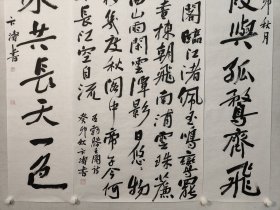 卯秋月
霞與孤鶩齊飛
閣臨江渚佩玉鳴鸞罷
畫棟朝飛南浦雲珠簾
西山雨閑雲潭影日悠悠物
幾度秋閣中帝子今何
長江空自流
王勃滕王閣詩
癸卯秋
水共長天一色